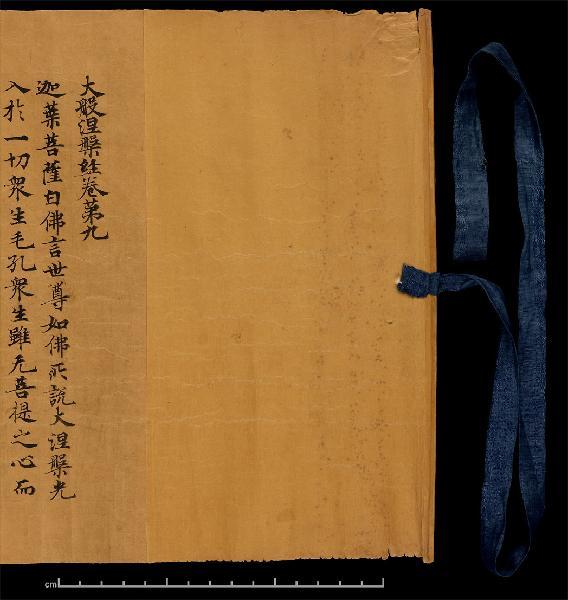 大般涅槃經卷第九
迦葉菩薩白佛言世尊如佛所說大涅槃光
入於一切衆生毛孔衆生雖无菩提之心而
cm